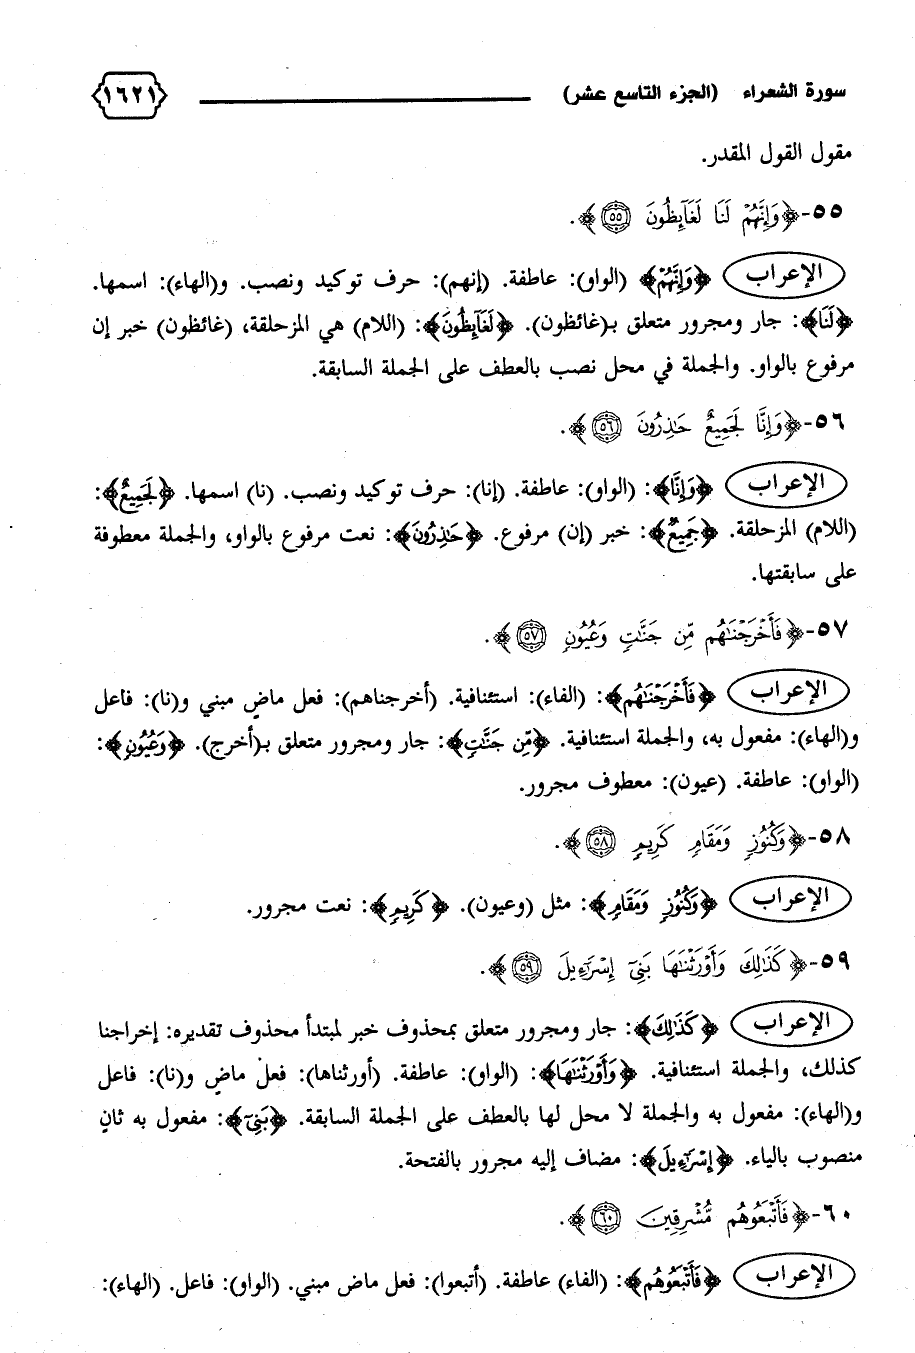 سورة الشعراء (الجزء التاسع عشر) ١٦٢١
مقول القول المقدر.
٥٥-﴿وَإِنَّهُمْ لَنَا لَغَآئِظُونَ ٥٥﴾.
الإعراب ﴿وَإِنَّهُمْ﴾ (الواو): عاطفة. (إنهم): حرف توكيد ونصب. و(الهاء): اسمها.
﴿لَنَا﴾: جار ومجرور متعلق بـ(غائظون). ﴿لَغَآئِظُونَ﴾: (اللام) هي المزحلقة، (غائظون) خبر إن
مرفوع بالواو. والجملة في محل نصب بالعطف على الجملة السابقة.
٥٦-﴿وَإِنَّا لَجَمِيعٌ حَٰذِرُونَ ٥٦﴾.
الإعراب ﴿وَإِنَّا﴾: (الواو): عاطفة. (إنا): حرف توكيد ونصب. (نا) اسمها. ﴿لَجَمِيعٌ﴾:
(اللام) المزحلقة. ﴿جَمِيعٌ﴾: خبر (إن) مرفوع. ﴿حَٰذِرُونَ﴾: نعت مرفوع بالواو، والجملة معطوفة
على سابقتها.
٥٧-﴿فَأَخْرَجْنَٰهُم مِّن جَنَّٰتٍ وَعُيُونٍ ٥٧﴾.
الإعراب ﴿فَأَخْرَجْنَٰهُم﴾: (الفاء): استئنافية. (أخرجناهم): فعل ماضٍ مبني و(نا): فاعل
و(الهاء): مفعول به، والجملة استئنافية. ﴿مِّن جَنَّٰتٍ﴾: جار ومجرور متعلق بـ(أخرج). ﴿وَعُيُونٍ﴾:
(الواو): عاطفة. (عيون): معطوف مجرور.
٥٨-﴿وَكُنُوزٍ وَمَقَامٍ كَرِيمٍ ٥٨﴾.
الإعراب ﴿وَكُنُوزٍ وَمَقَامٍ﴾: مثل (وعيون). ﴿كَرِيمٍ﴾: نعت مجرور.
٥٩-﴿كَذَٰلِكَ وَأَوْرَثْنَٰهَا بَنِىٓ إِسْرَٰٓءِيلَ ٥٩﴾.
الإعراب ﴿كَذَٰلِكَ﴾: جار ومجرور متعلق بمحذوف خبر لمبتدأ محذوف تقديره: إخراجنا
كذلك، والجملة استئنافية. ﴿وَأَوْرَثْنَٰهَا﴾: (الواو): عاطفة. (أورثناها): فعل ماضٍ و(نا): فاعل
و(الهاء): مفعول به والجملة لا محل لها بالعطف على الجملة السابقة. ﴿بَنِىٓ﴾: مفعول به ثانٍ
منصوب بالياء. ﴿إِسْرَٰٓءِيلَ﴾: مضاف إليه مجرور بالفتحة.
٦٠-﴿فَأَتْبَعُوهُم مُّشْرِقِينَ ٦٠﴾.
الإعراب ﴿فَأَتْبَعُوهُم﴾: (الفاء) عاطفة. (أتبعوا): فعل ماض مبني. (الواو): فاعل. (الهاء):